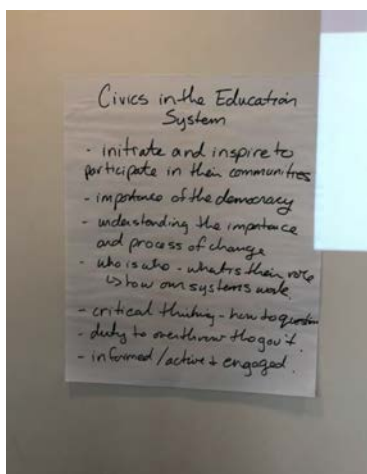 Civics in the Education
System
- initiate and inspire to
participate in their communities
- importance of the democracy
- understanding the importance
and process of change
- who is who - what is their role
↳ how our systems work.
- critical thinking - how to question
- duty to overthrow the gov't.
- informed / active + engaged.